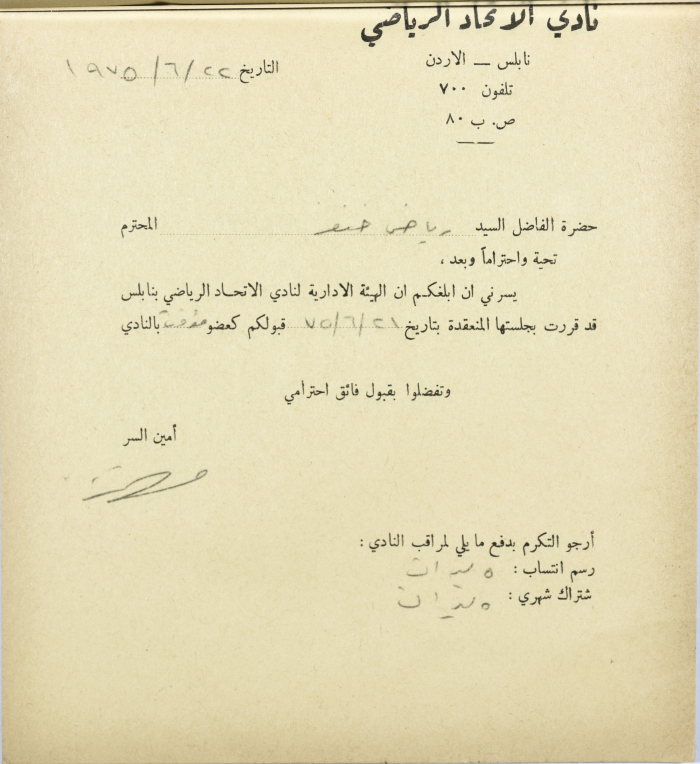 نادي الاتحاد الرياضي
نابلس — الاردن
تلفون ٧٠٠
ص. ب ٨٠
التاريخ ٢٢/٦/١٩٧٥
حضرة الفاضل السيد رياض خنفر المحترم
تحية واحتراماً وبعد ،
يسرني ان ابلغكم ان الهيئة الادارية لنادي الاتحاد الرياضي بنابلس
قد قررت بجلستها المنعقدة بتاريخ ٢١/٦/٧٥ قبولكم كعضو مؤقت بالنادي
وتفضلوا بقبول فائق احترامي
أمين السر
أرجو التكرم بدفع ما يلي لمراقب النادي :
رسم انتساب : ٥ ليرات
شتراك شهري : ٥ ليرات